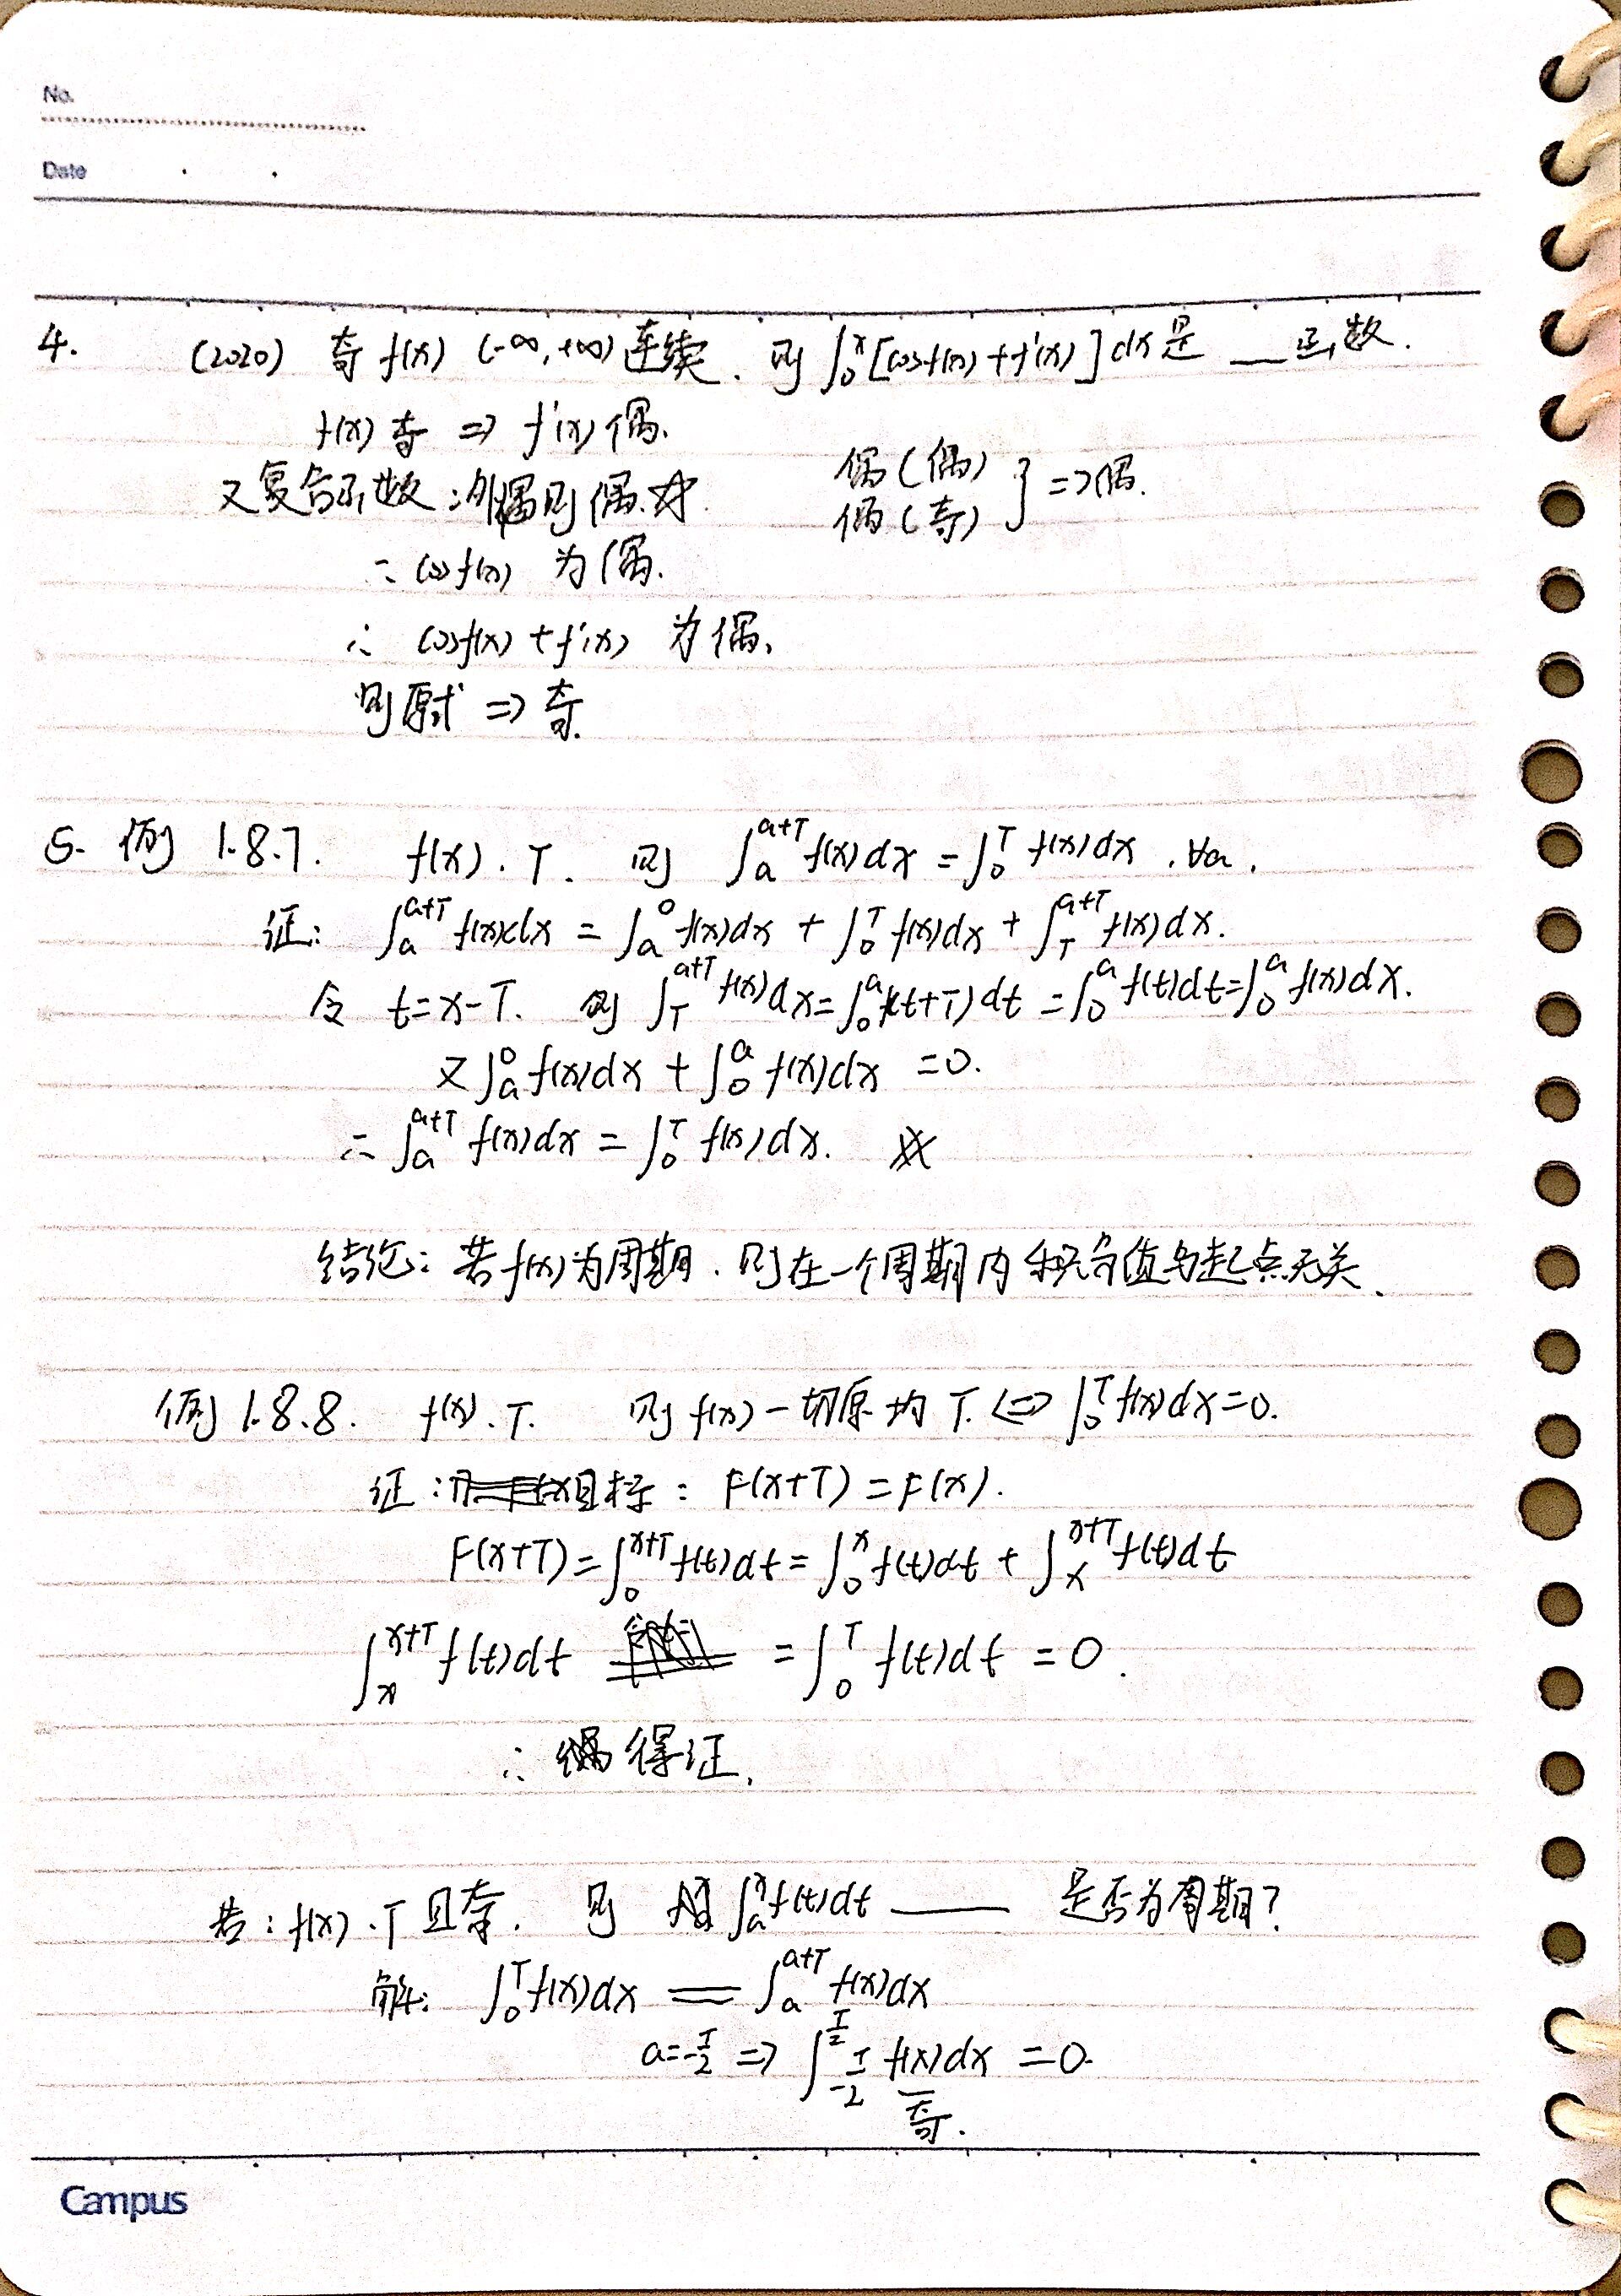 No.
Date
4. (2020) 奇 f(x) (-∞, +∞) 连续. 则 ∫₀ˣ[cosf(x)+f'(x)]dx是 __函数.
f(x) 奇 ⇒ f'(x) 偶.
又复合函数:外偶则偶. 偶(偶) 偶(奇) } ⇒偶.
∴ cosf(x) 为偶.
∴ cosf(x)+f'(x) 为偶.
则原式 ⇒ 奇.
5. 例 1.8.7. f(x). T. 则 ∫ₐᵃ⁺ᵀ f(x)dx = ∫₀ᵀ f(x)dx. ∀a.
证: ∫ₐᵃ⁺ᵀ f(x)dx = ∫ₐ⁰ f(x)dx + ∫₀ᵀ f(x)dx + ∫_T^(a+T) f(x)dx.
令 t=x-T. 则 ∫_T^(a+T) f(x)dx = ∫₀ᵃ f(t+T)dt = ∫₀ᵃ f(t)dt = ∫₀ᵃ f(x)dx.
又 ∫ₐ⁰ f(x)dx + ∫₀ᵃ f(x)dx =0.
∴ ∫ₐᵃ⁺ᵀ f(x)dx = ∫₀ᵀ f(x)dx. ※
结论: 若f(x)为周期. 则在一个周期内积分值与起点无关.
例 1.8.8. f(x). T. 则 f(x)一切原均 T. ⇔ ∫₀ᵀ f(x)dx=0.
证: 目标: F(x+T) = F(x).
F(x+T) = ∫₀ˣ⁺ᵀ f(t)dt = ∫₀ˣ f(t)dt + ∫ₓˣ⁺ᵀ f(t)dt
∫ₓˣ⁺ᵀ f(t)dt = ∫₀ᵀ f(t)dt = 0.
∴ 得证.
若: f(x). T 且奇. 则 ∫ₐˣ f(t)dt ____ 是否为周期?
解: ∫₀ᵀ f(x)dx = ∫ₐᵃ⁺ᵀ f(x)dx
a=-T/2 ⇒ ∫_(-T/2)^(T/2) f(x)dx =0.
奇.
Campus